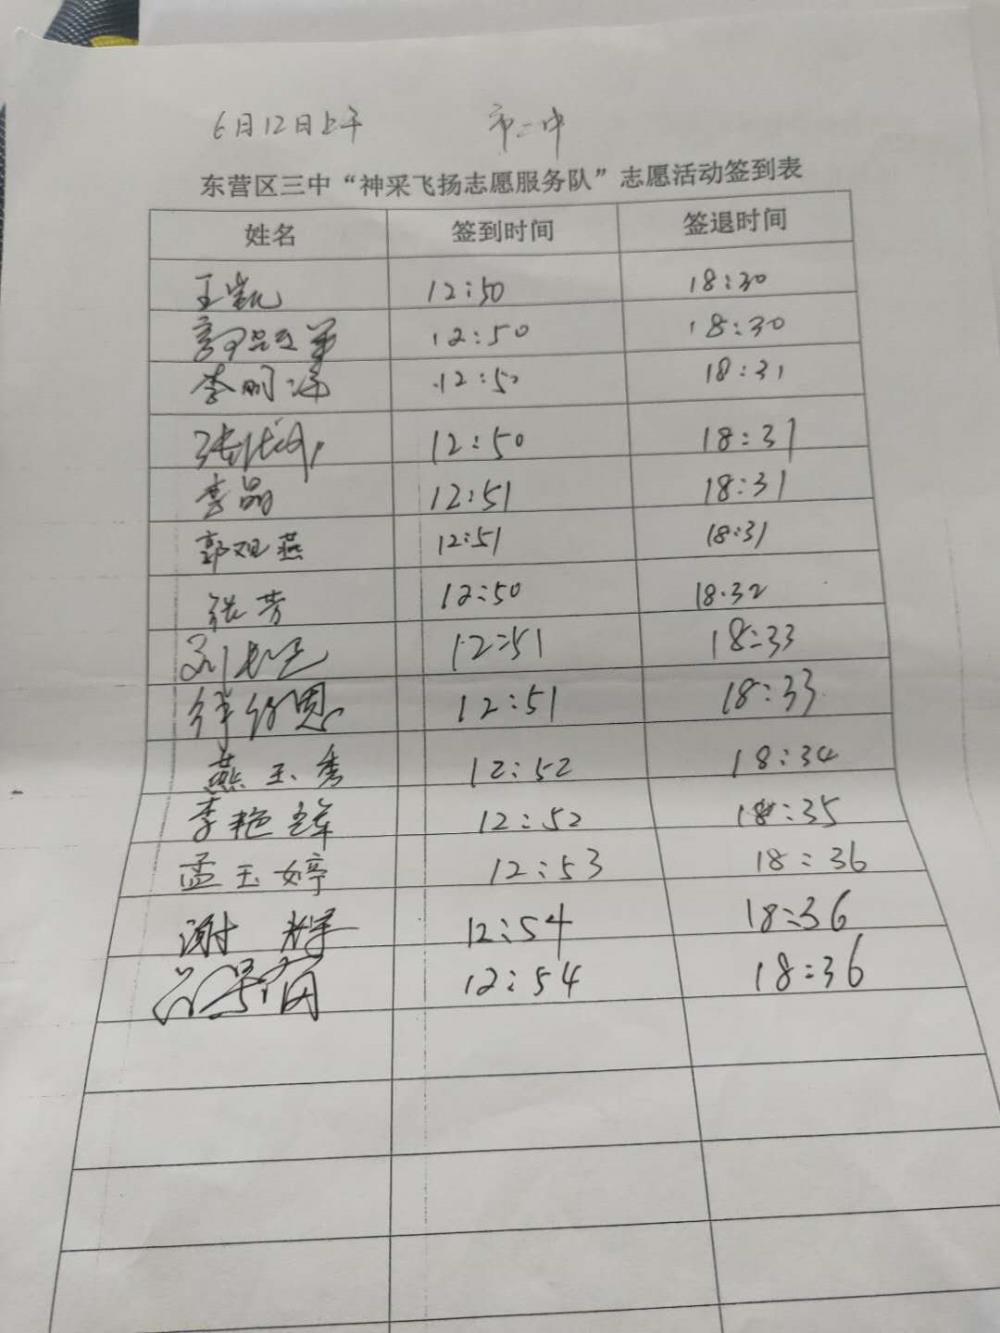 6月12日上午 市二中
东营区三中“神采飞扬志愿服务队”志愿活动签到表
姓名 签到时间 签退时间
王凯 12:50 18:30
12:50 18:30
李明 12:50 18:31
12:50 18:31
李晶 12:51 18:31
郭观燕 12:51 18:31
张芳 12:50 18.32
12:51 18:33
12:51 18:33
燕玉秀 12:52 18:34
李艳 12:52 18:35
孟玉婷 12:53 18:36
谢辉 12:54 18:36
12:54 18:36